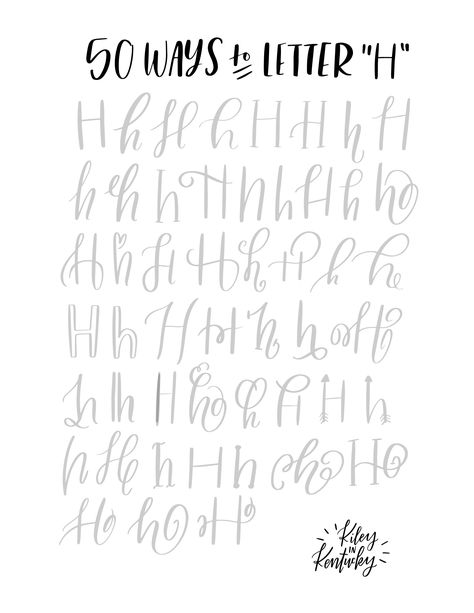 50 WAYS to LETTER "H"
H h H h H H h H
h h h H h h H h h
H h H H h H h h
H h H H h h H
h h H h h H H h
h H h H h h H
H h H
Kiley
IN
Kentucky